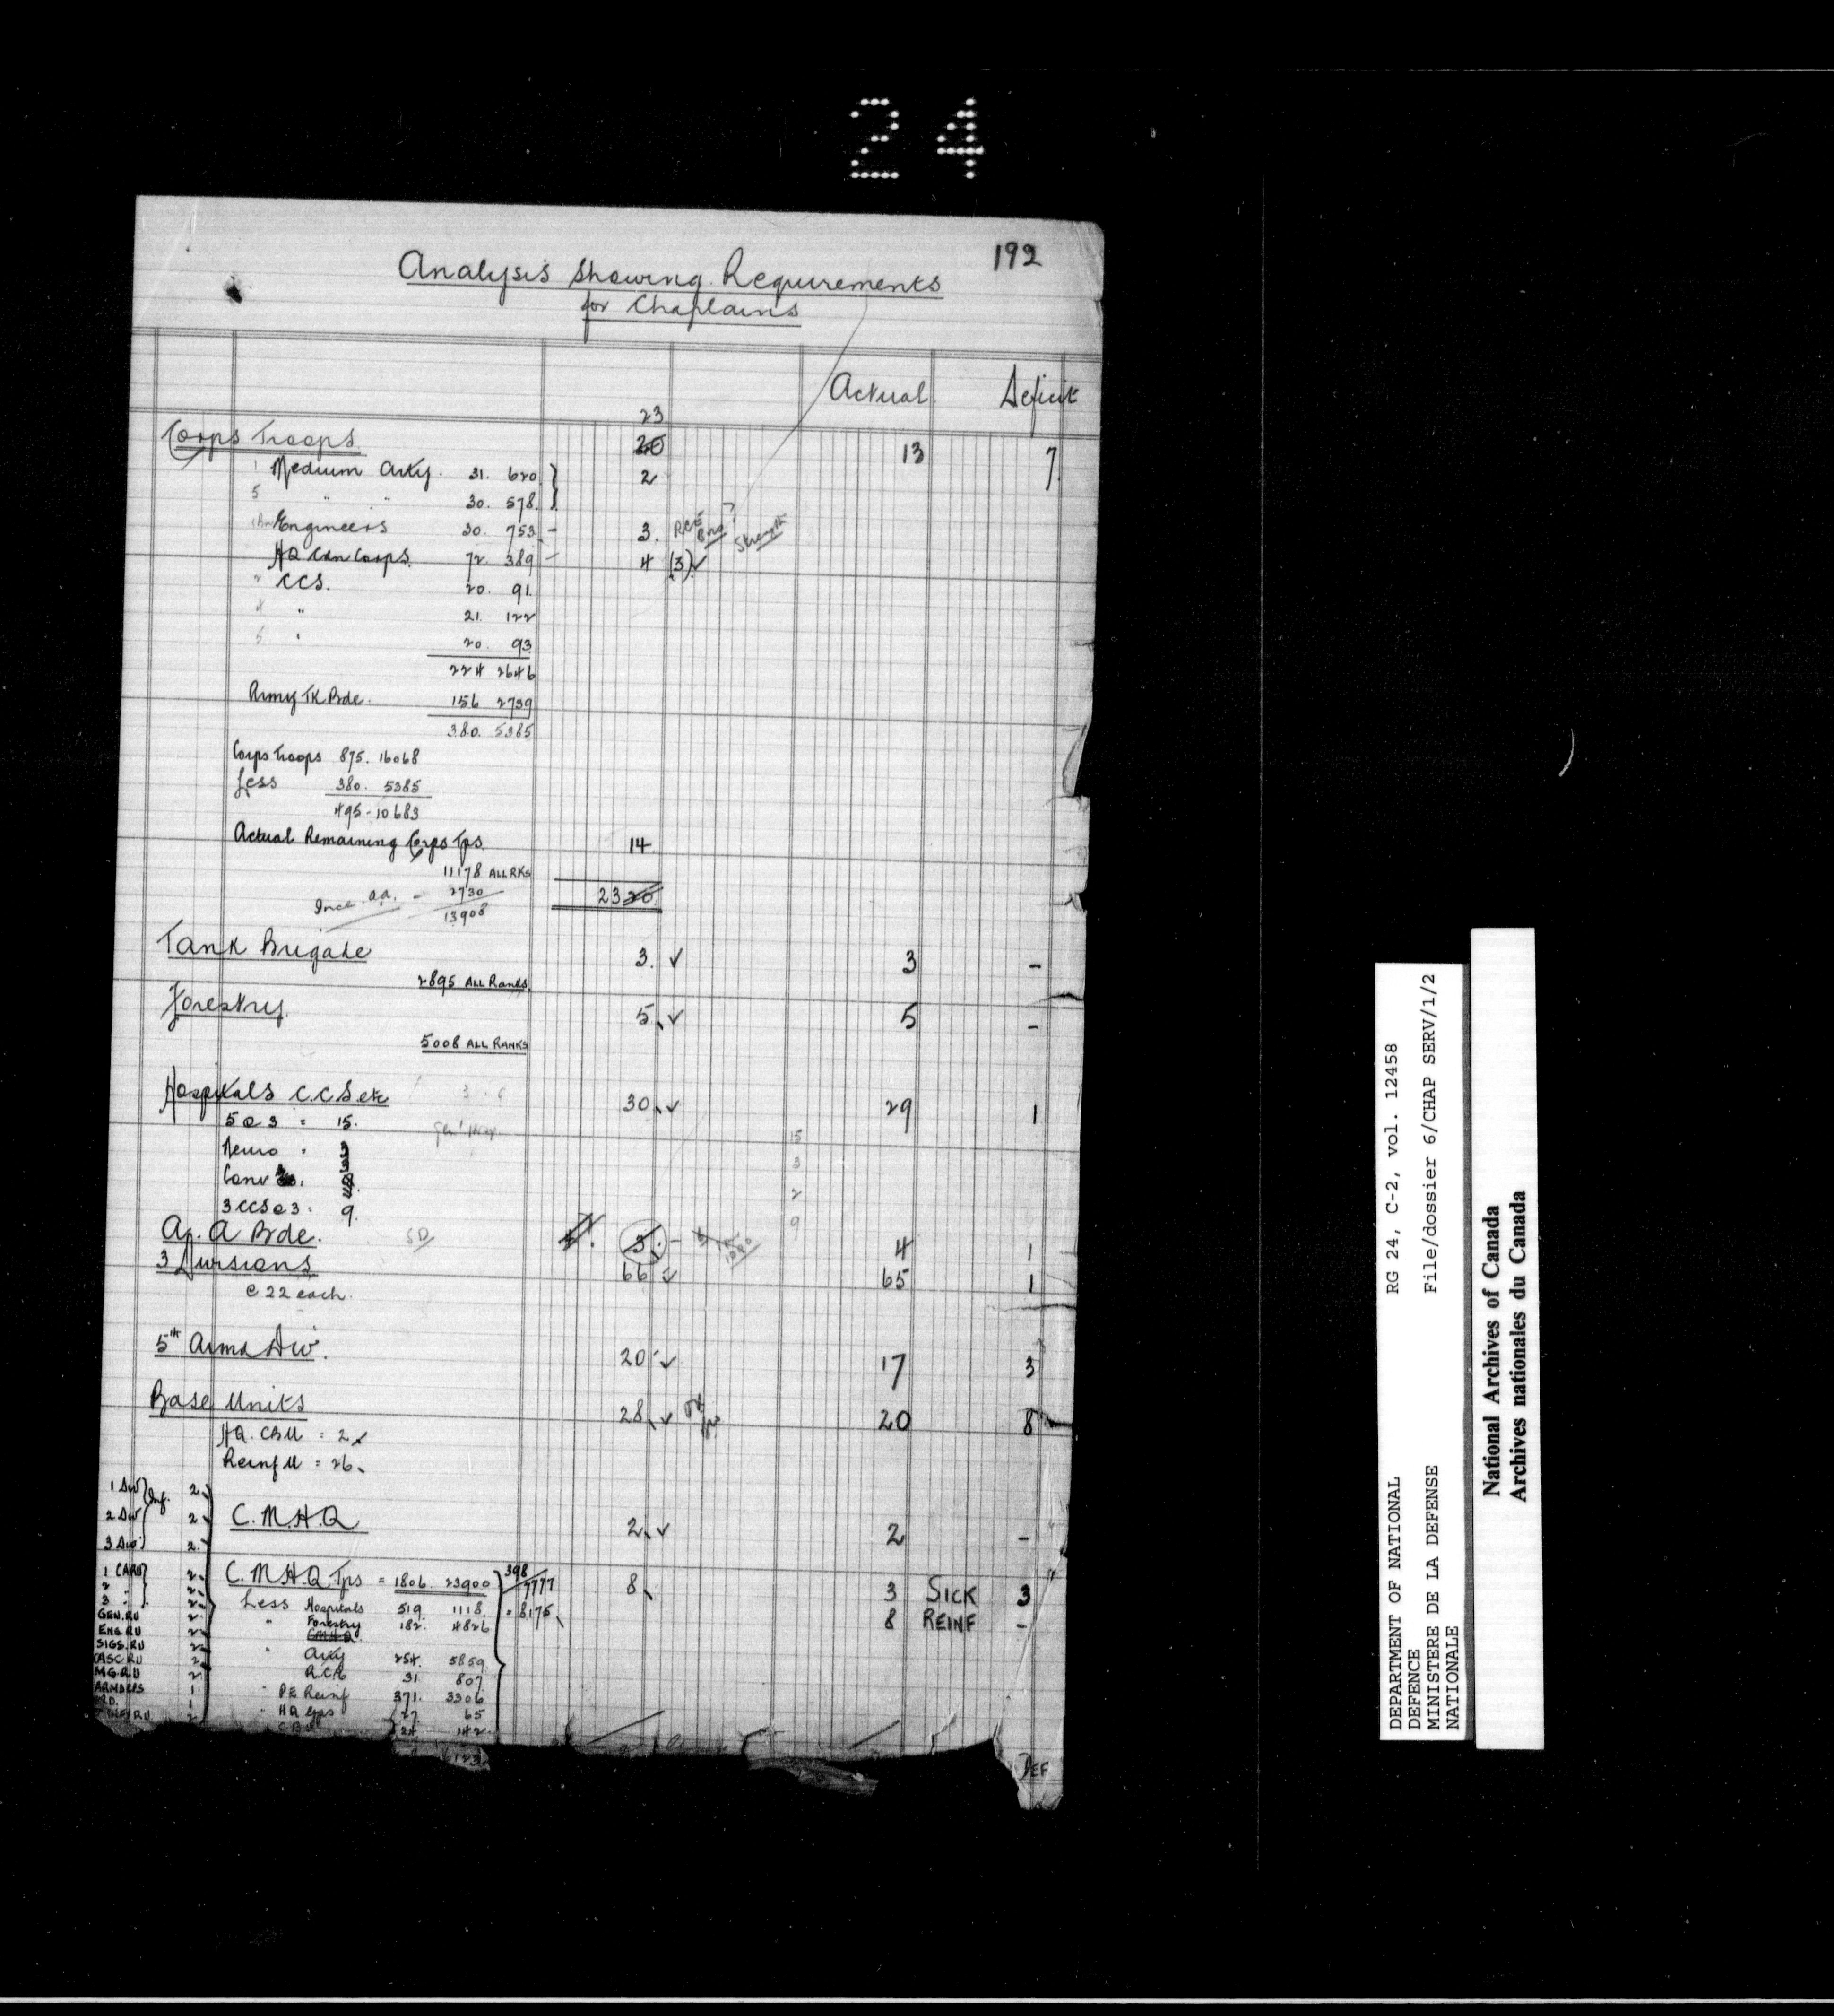 24
192
Analysis Showing Requirements
for Chaplains
Actual Deficit
23
Corps Troops. 20 13 7
1 Medium Arty. 31. 620 2
5 " " 30. 578.
Engineers 30. 753 - 3. RCE Bns ? Strength
HQ Cdn Corps. 72. 389 - 4 (3) ✓
" CCS. 20. 91.
4 " 21. 122
5 " 20. 93
224 2646
Army TK Bde. 156 2739
380. 5385
Corps Troops 875. 16068
Less 380. 5385
495 - 10683
Actual Remaining Corps Tps. 14
11178 ALL RKS
Incl. a.a. - 2730 23 20
13908
Tank Brigade 3. ✓ 3 -
2895 ALL Ranks.
Forestry. 5. ✓ 5 -
5008 ALL RANKS
Hospitals C.C.S etc 30. ✓ 29 1
5 @ 3 = 15. Gen' Hosp 15
Neuro = 3 3
Conv 2
3 CCS @ 3 = 9. 9
A. A Bde. SD/ 3. 4 1
3 Divisions 66 ✓ 65 1
@ 22 each.
5th Armd Div. 20 ✓ 17 3
Base Units 28 ✓ 20 8
HQ. CBU = 2
Reinf U = 26
1 Div } Inf. 2
2 Div 2 C.M.H.Q 2 ✓ 2 -
3 Div 2
1 CARU 2 C.M.H.Q Tps = 1806. 23900 398/7777 8 3 SICK 3
2 " 2
3 " 2 Less Hospitals 519. 1118. = 8175 8 REINF -
GEN. RU 2 " Forestry 182. 4826
ENG RU 2 CMHQ.
SIGS. RU 2 " Arty 254. 5859
CASC. RU 2 R.C.E 31 807
M.G. R.U 2 " P E Reinf 371. 3306
ARMD CPS 1 " HQ 27 65
1 CBU 24 142
DEF
RG 24, C-2, vol. 12458
File/dossier 6/CHAP SERV/1/2
DEPARTMENT OF NATIONAL
DEFENCE
MINISTERE DE LA DEFENSE
NATIONALE
National Archives of Canada
Archives nationales du Canada